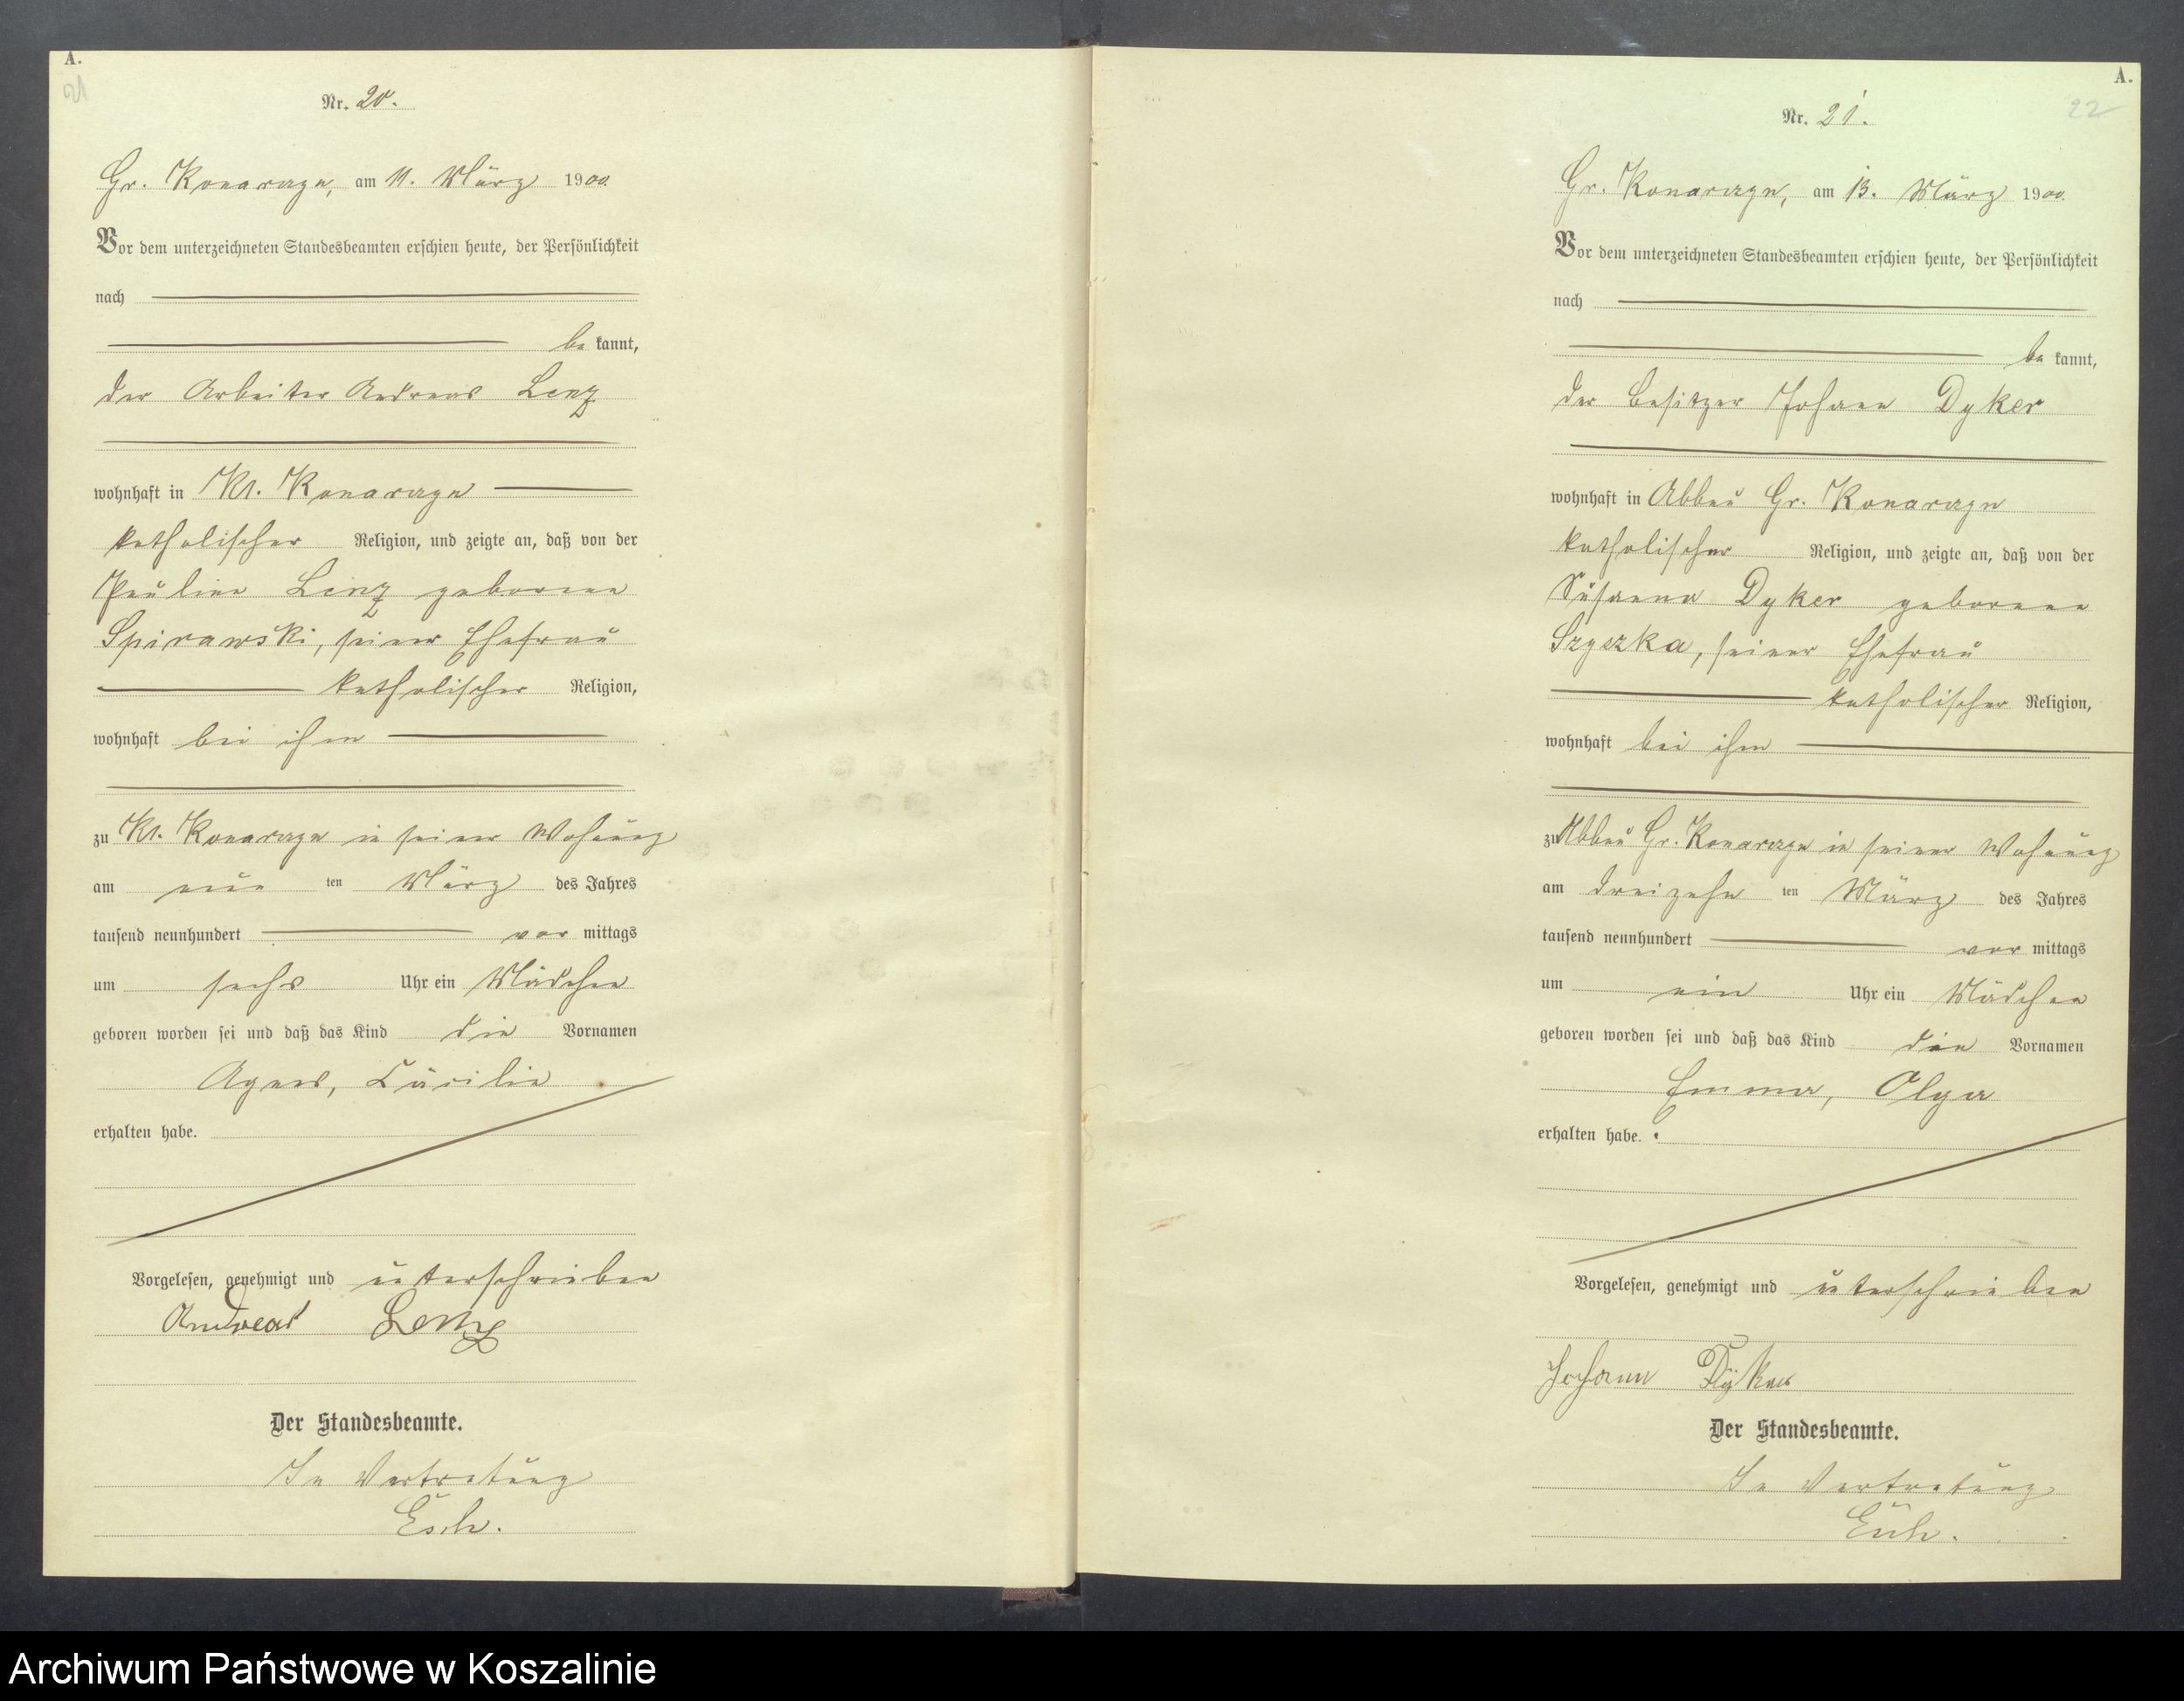 A.
21
Nr. 20.
Gr. Konarczyn, am 11. März 1900.
Vor dem unterzeichneten Standesbeamten erschien heute, der Persönlichkeit
nach
be kannt,
der Arbeiter Andreas Lenz
wohnhaft in Kl. Konarczyn
katholischer Religion, und zeigte an, daß von der
Pauline Lenz geborene
seiner Ehefrau
katholischer Religion,
wohnhaft bei ihm
zu Kl. Konarczyn in seiner Wohnung
am neun ten März des Jahres
tausend neunhundert vor mittags
um sechs Uhr ein Mädchen
geboren worden sei und daß das Kind die Vornamen
Agnes, Cäcilie
erhalten habe.
Vorgelesen, genehmigt und unterschrieben
Andreas Lenz
Der Standesbeamte.
In Vertretung
A.
22
Nr. 21.
Gr. Konarczyn, am 13. März 1900.
Vor dem unterzeichneten Standesbeamten erschien heute, der Persönlichkeit
nach
be kannt,
der Besitzer Johann Dyker
wohnhaft in Abbau Gr. Konarczyn
katholischer Religion, und zeigte an, daß von der
Susanna Dyker geborene
seiner Ehefrau
katholischer Religion,
wohnhaft bei ihm
zu Abbau Gr. Konarczyn in seiner Wohnung
am dreizehn ten März des Jahres
tausend neunhundert vor mittags
um ein Uhr ein Mädchen
geboren worden sei und daß das Kind die Vornamen
Emma, Olga
erhalten habe.
Vorgelesen, genehmigt und unterschrieben
Johann Dyker
Der Standesbeamte.
In Vertretung
Archiwum Państwowe w Koszalinie